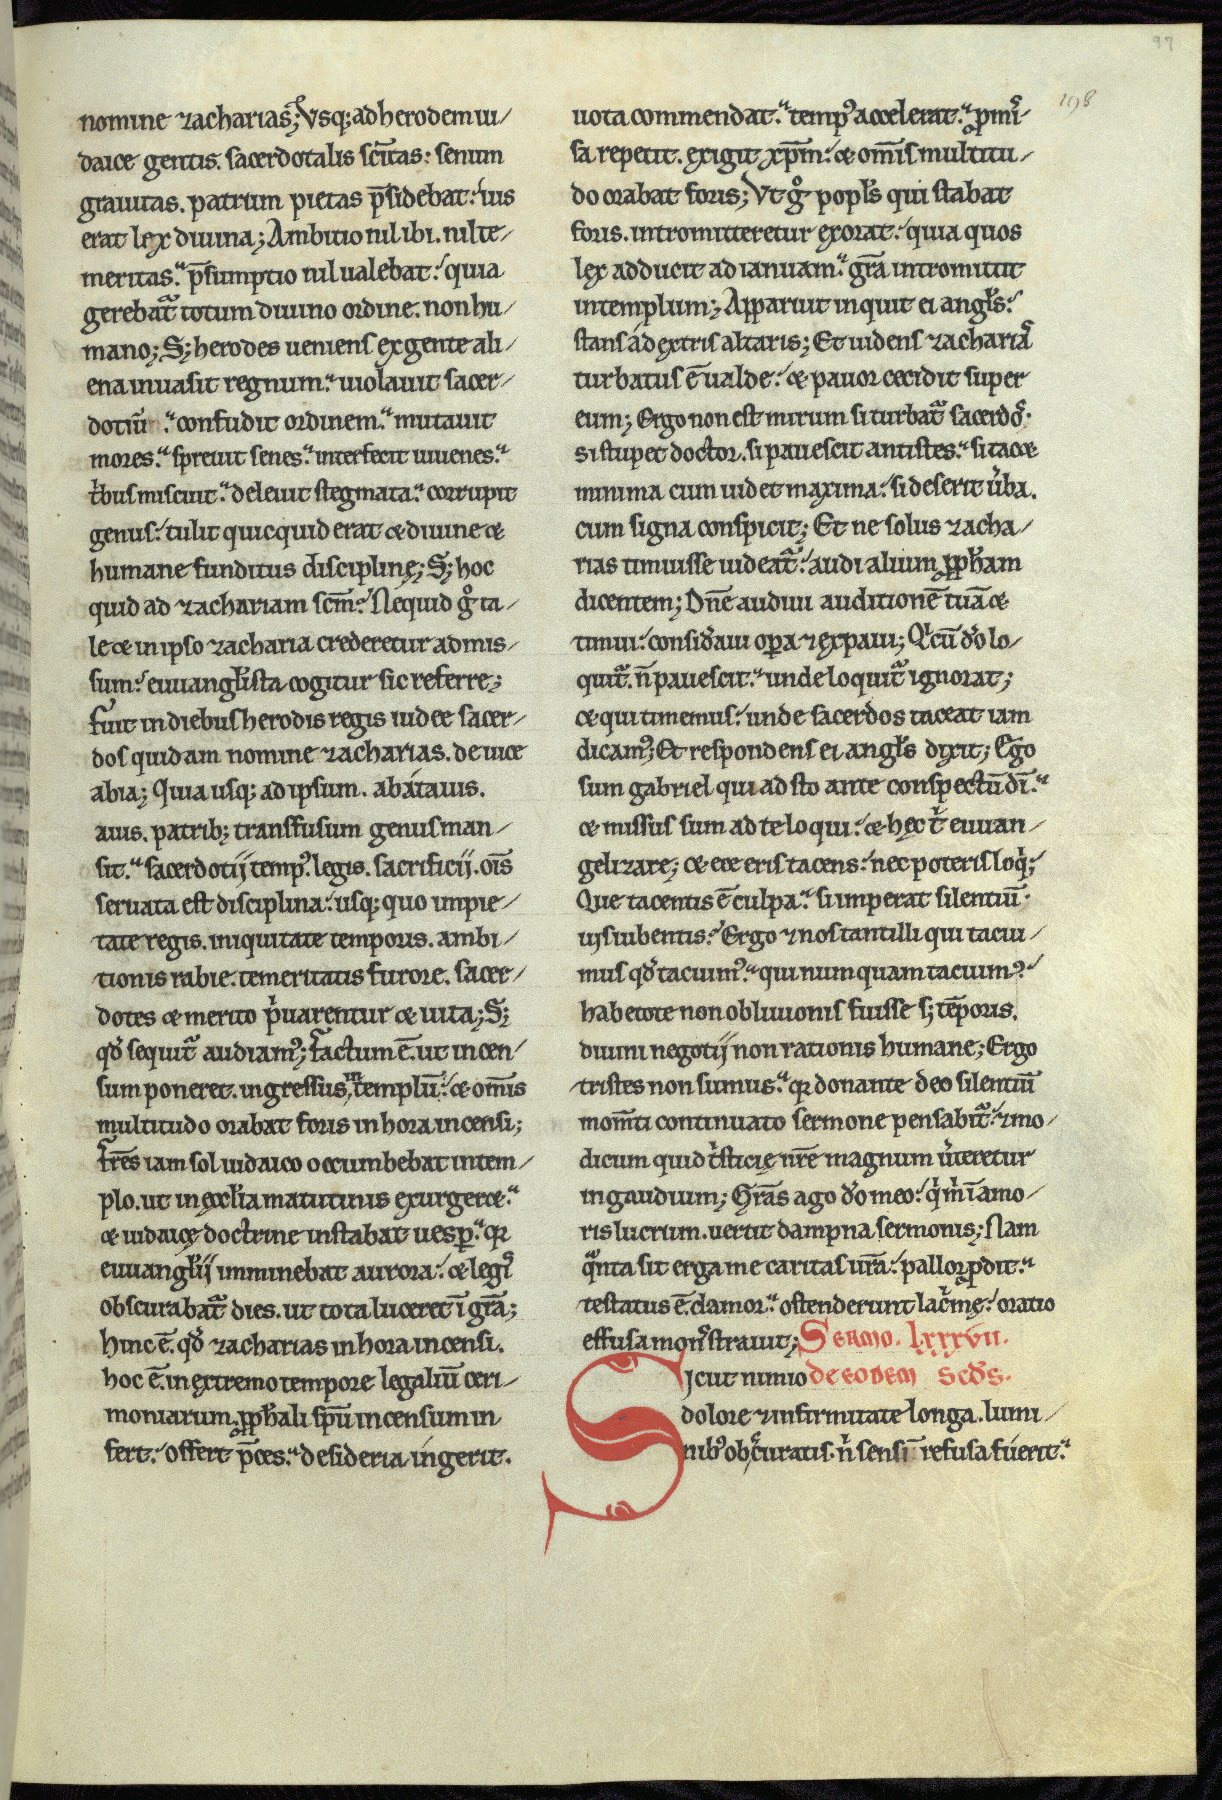 97
198
nomine zacharias; Vsq; ad herodem iu/
daicę gentis. sacerdotalis sc̄itas: senum
grauitas. patrum pietas p̄sidebat: ius
erat lex diuina; Ambitio nil ibi. nil te/
meritas. p̄sumptio nil ualebat: quia
gerebat᷑ totum diuino ordine. non hu/
mano; S; herodes ueniens ex gente ali/
ena inuasit regnum. uiolauit sacer/
dotiū. confudit ordinem. mutauit
mores. spreuit senes. interfecit iuuenes.
t̓bus miscuit. deleuit stegmata. corrupit
genus: tulit quicquid erat & diuine &
humane funditus disciplinę; S; hoc
quid ad zachariam sc̄m? Ne quid gͦ ta/
le & in ipso zacharia crederetur admis/
sum: euuangl̓ista cogitur sic referre;
Fuit in diebus herodis regis iudee sacer/
dos quidam nomine zacharias. de uice
abia; Quia usq; ad ipsum. ab atauis.
auis. patrib; transfusum genus man/
sit. sacerdotij temp᷒. legis. sacrificij. oīs
seruata est disciplina: usq; quo impie/
tate regis. iniquitate temporis. ambi/
tionis rabie. temeritatis furore. sacer/
dotes & merito p̓uarentur & uita; S;
qd̓ sequit᷑ audiam᷒; Factum ē. ut incen/
sum poneret. ingressus in templū: & omīs
multitudo orabat foris in hora incensi;
Fr̄es iam sol iudaico occumbebat in tem/
plo. ut in ęccl̓ia matutinis exurgeret.
& iudaicę doctrine instabat uesp̱. qr
euuangl̓ij imminebat aurora: & legis
obscurabat᷑ dies. ut tota luceret ī gr̄a;
hinc ē. qd̓ zacharias in hora incensi.
hoc ē. in extremo tempore legaliū ceri/
moniarum. ꝓph̓ali sp̄u incensum in
fert: offert p̄ces. desideria ingerit.
uota commendat. temp᷒ accelerat. ꝓmis
sa repetit. exigit xp̄m: & om̄is multitu/
do orabat foris; Vt gͦ popl̓s qui stabat
foris. intromitteretur exorat: quia quos
lex adducit ad ianuam. gr̄a intromittit
in templum; Apparuit inquit ei angl̓s:
stans ad extris altaris; Et uidens zacharias
turbatus ē ualde: & pauor cecidit super
eum; Ergo non est mirum si turbat᷑ sacerdos.
si stupet doctor. si pauescit antistes. si tacet
minima cum uidet maxima: si deserit u̓ba.
cum signa conspicit; Et ne solus zacha/
rias timuisse uideat᷑: audi alium ꝓph̓am
dicentem; Dn̄e audiui auditionē tuā &
timui: consid̓aui oꝑa ⁊ expaui; Qi cū d̓o lo/
quit᷑. n̄ pauescit. unde loquit᷑ ignorat;
& qui timemus: unde sacerdos taceat iam
dicam᷒; Et respondens ei angl̓s dixit; Ego
sum gabriel qui adsto ante conspectū dī.
& missus sum ad te loqui: & hęc t̓ euuan/
gelizare; & ecce eris tacens: nec poteris loqi;
Que tacentis ē culpa. si imperat silentiū
uis iubentis? Ergo ⁊ nos tantilli qui tacui/
mus qd̓ tacuim᷒. qui numquam tacuim᷒?
habetote non obliuionis fuisse s; tēporis.
diuini negotij non rationis humane; Ergo
tristes non sumus. qr donante deo silentiū
mom̄ti continuato sermone pensabit᷑: ⁊ mo/
dicum quid t̓sticię nr̄e magnum u̓teretur
in gaudium; Gr̄as ago d̓o meo: qi m̓ ī amo/
ris lucrum. uertit dampna sermonis; Nam
qa̓nta sit erga me caritas ur̄a: pallor ꝓdit.
testatus ē clamor. ostenderunt lacr̓mę: oratio
effusa monstrauit; Sermo. lxxxvii.
Sicut nimio de eodem scd̓s.
dolore ⁊ infirmitate longa. lumi/
nib᷒ obscuratis. n̄ sensi refusa fuerit.